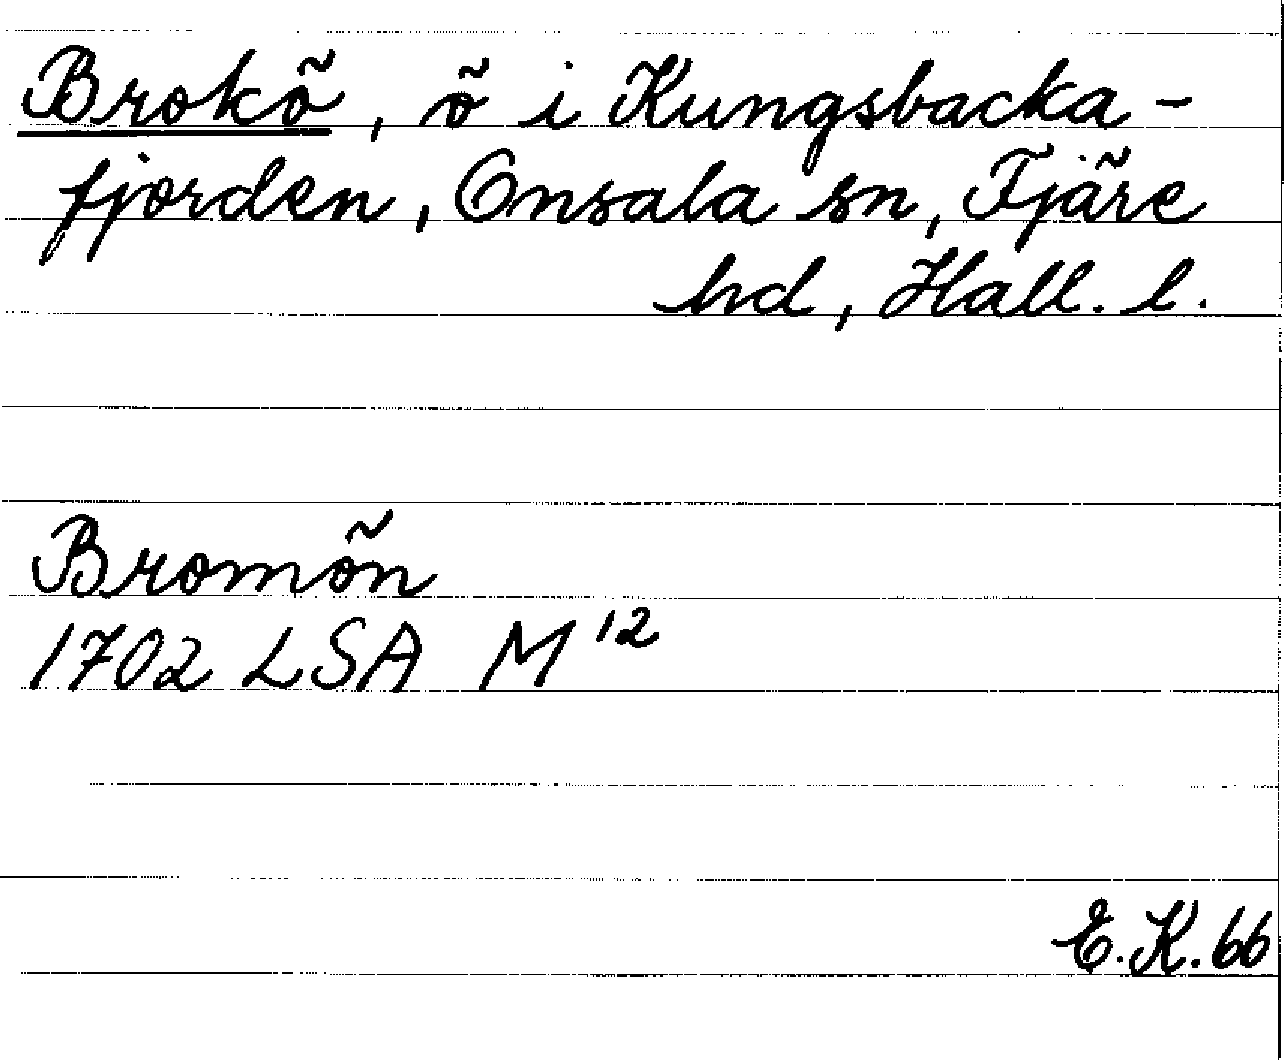 Brokö, ö i Kungsbacka-
fjorden, Onsala sn, Fjäre
hd, Hall. l.
Bromön
1702 LSA M¹²
E.K. 66